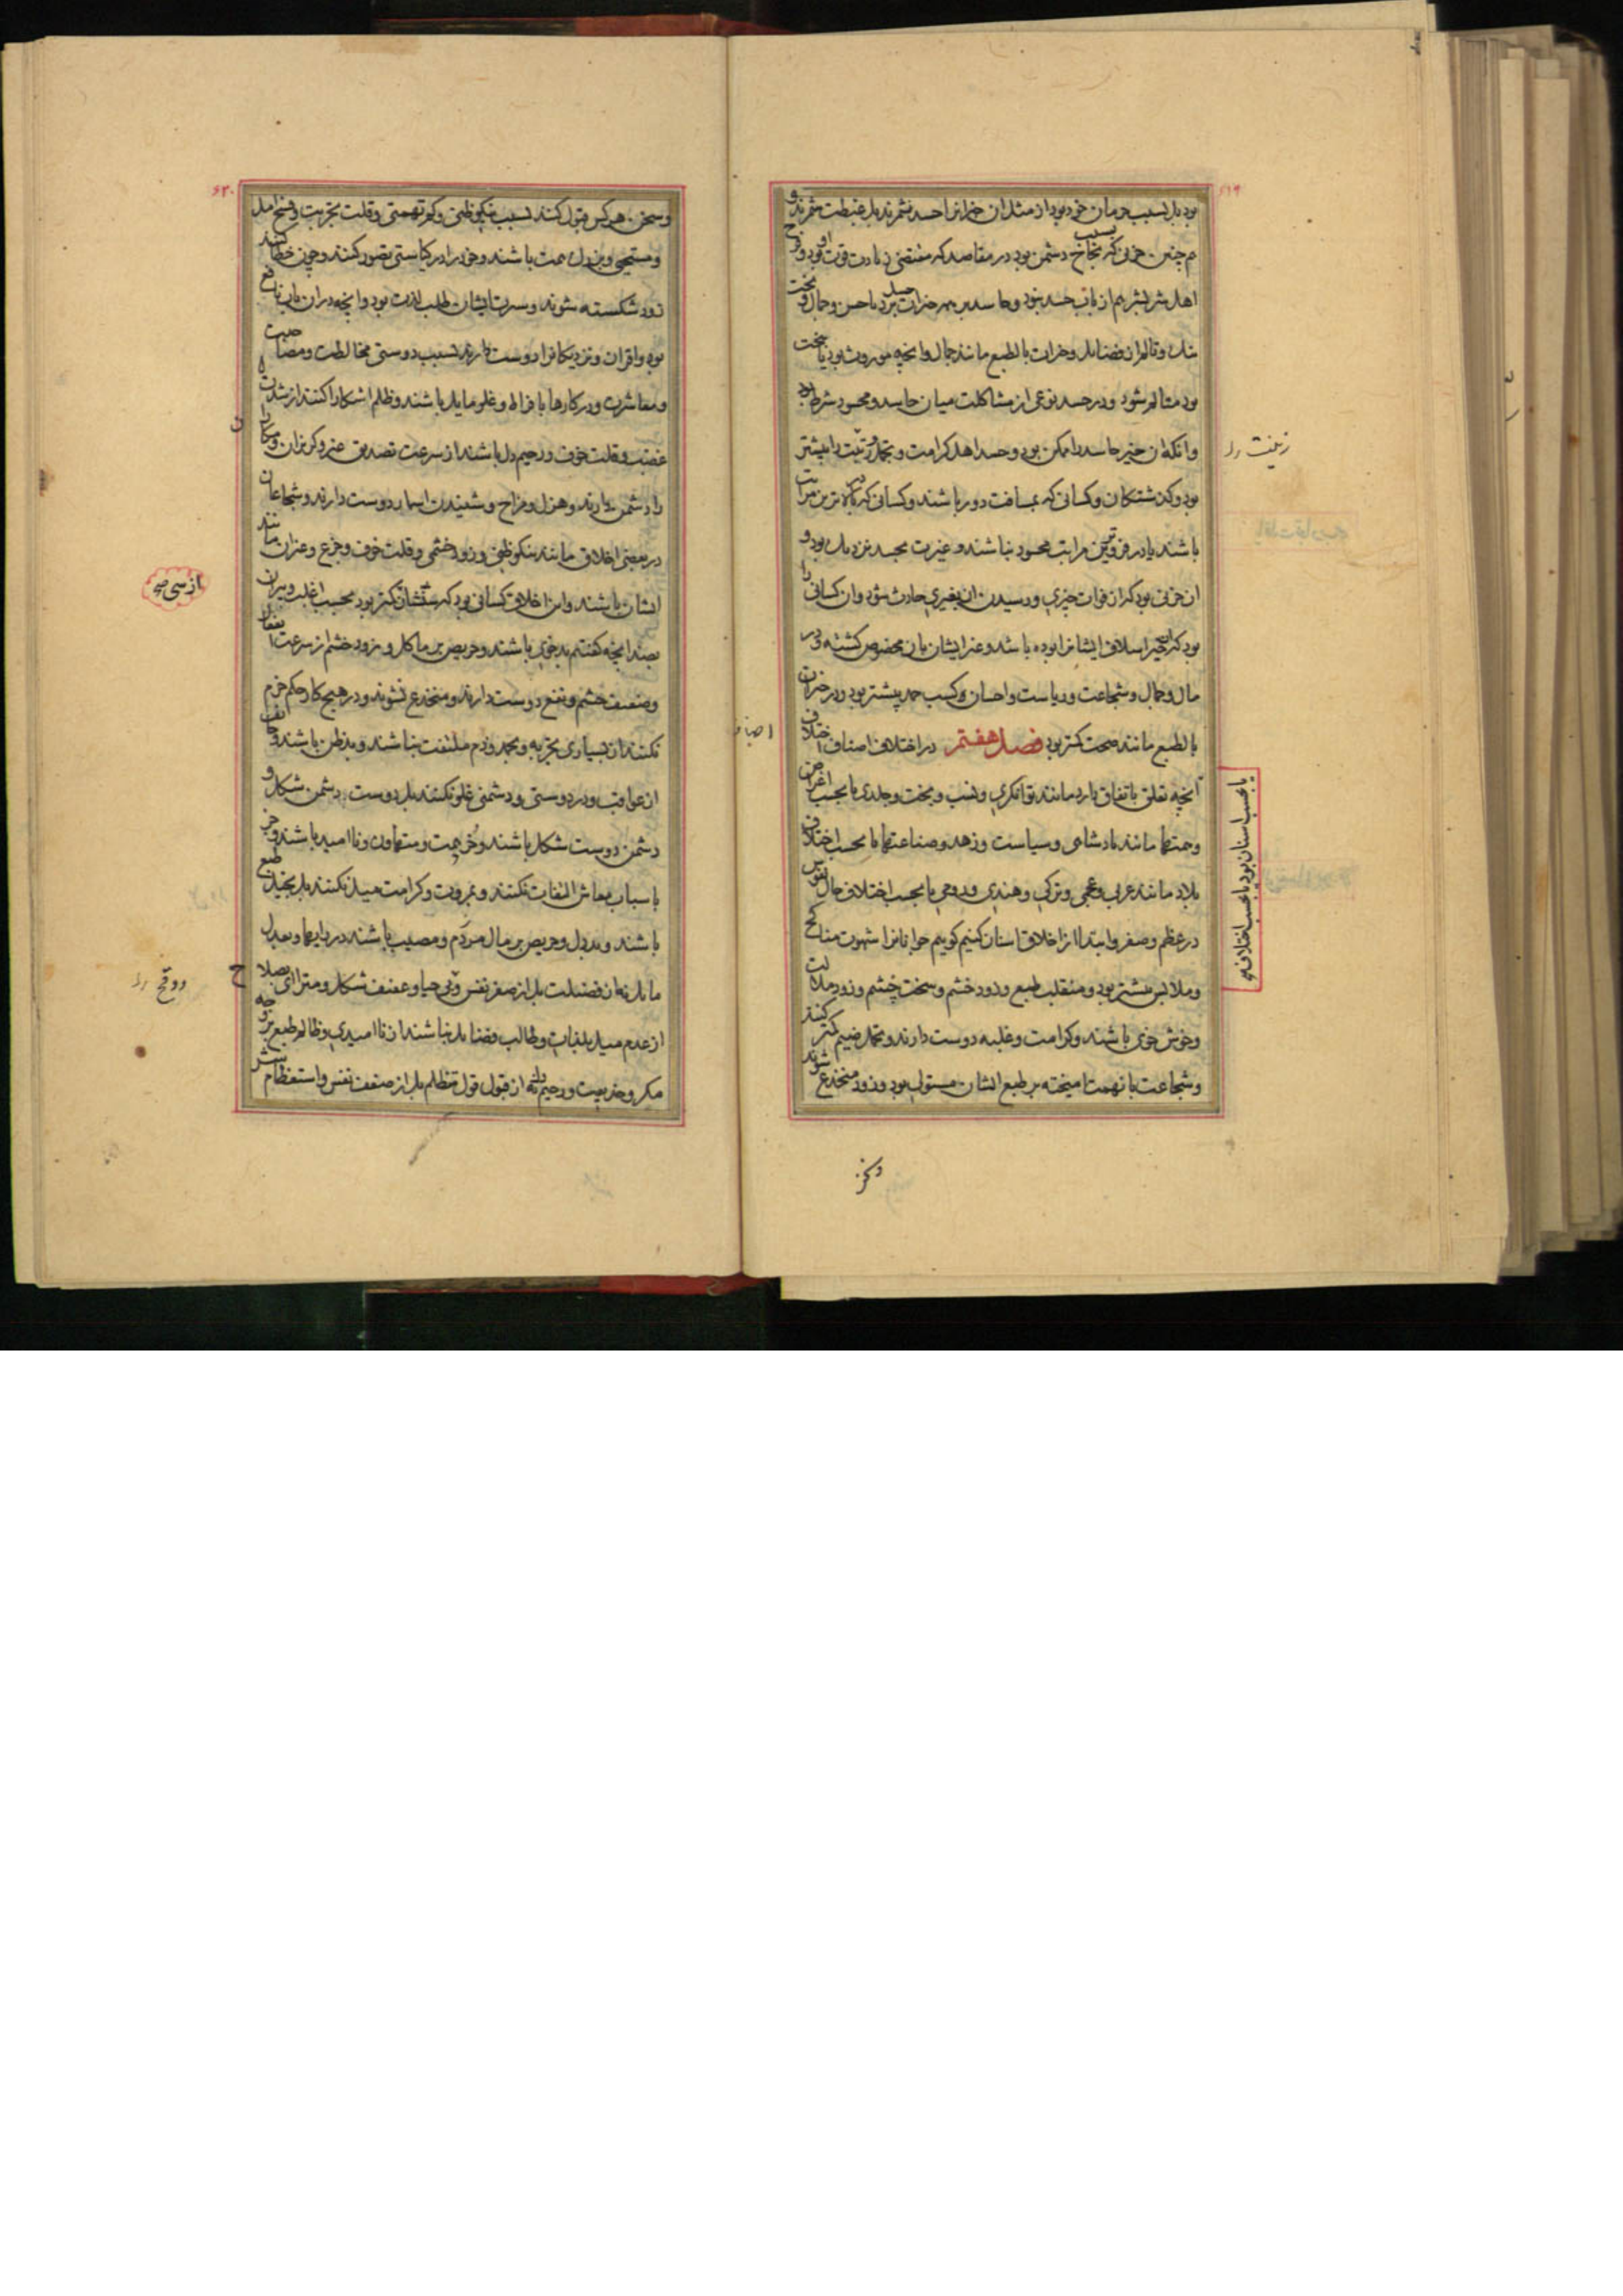 ۶۱۹
بود بل بسبب حرمان خود بود از مثل ان خیر انرا حسد نشمرند بل غبطت شمرند و
هم چنین حزنی که بسبب نجاح دشمن بود در مقاصد که مقتضی زیادت قوت او بود و فرح
اهل شر بشر هم از باب حسد نبود و حاسد بر همه خیرات حسد برد یا حسن و جمال و بخت
نیک و تالم از فضایل و خیرات بالطبع مانند جمال و انچه موروث بود یا ببخت
بود متالم شود و در حسد نوعی از مشاکلت میان حاسد و محسود شرط بود
و انکه ان خیر حاسد را ممکن بود و حسد اهل کرامت و تجمل و رتبت را بیشتر
بود و کذشتکان و کسانی که بمسافت دور باشند و کسانی که در بالاترین مراتب
باشند یا در فروترین مراتب محسود نباشند و غیرت بحسد نزدیک بود و
ان حزنی بود که از فوات چیزی و رسیدن ان بغیری حادث شود و ان کسانی را
بود که ان خیر اسلاف ایشانرا بوده باشد و غیر ایشان بان مخصوص کشته و در
مال و جمال و شجاعت و ریاست و احسان و کسب حمد بیشتر بود و در خیرات
بالطبع مانند صحت کمتر بود فصل هفتم در اختلاف اصناف اختلاف
انچه تعلق باتفاق دارد مانند توانکری و نسب و بخت و جلدی یا بحسب اغراض
و همتها مانند پادشاهی و سیاست و زهد و صناعتها یا بحسب اختلاف
بلاد مانند عربی و عجمی و ترکی و هندی و رومی یا بحسب اختلاف حال نفوس
در عظم و صغر و ابتدا از اخلاق اسنان کنیم کوییم جوانانرا شهوت مناکح
و ملابس بیشتر بود و متقلب طبع و زود خشم و سخت خشم و زود ملالت
و خوش خوی باشند و کرامت و غلبه دوست دارند و تحمل ضیم کمتر کنند
و شجاعت با نهمت امیخته بر طبع ایشان مستولی بود و زود منخدع شوند
زینت
یا بحسب اسنان بود یا بحسب اخلاف
۶۲۰
و سخن هر کس قبول کنند بسبب نیکو ظنی و کم تهمتی و قلت تجربت و فسح امل
و مستحیی و بزرک همت باشند و خود را در کاستی تصور کنند و چون خطا کنند
زود شکسته شوند و سیرت ایشان طلب لذت بود و انچه در ان باب نافع
بود و اقران و نزدیکانرا دوست دارند بسبب دوستی مخالطت و مصاحبت
و معاشرت و در کارها بافراط و غلو مایل باشند و ظلم اشکارا کنند از شدت
غضب و قلت خوف و رحیم دل باشند از سرعت تصدیق عذر و کربزان و مکارانرا
را دشمن دارند و هزل و مزاح و شنیدن اسمار دوست دارند و شجاعان
در بعضی اخلاق مانند نیکو ظنی و زود خشمی و قلت خوف و جزع و غیر ان مانند
ایشان باشند و این اخلاق کسانی بود که سنشان کمتر بود بحسب اغلب و پیران
بضد انچه کفتیم بدخوی باشند و حریص بر ماکل و زود خشم از سرعت انفعال
و ضعیف خشم و نفع دوست دارند و منخدع نشوند و در هیچ کار حکم جزم
نکنند از بسیاری تجربه و بحمد و ذم ملتفت نباشند و بدظن باشند و خایف
از عواقب و در دوستی و دشمنی غلو نکنند بل دوست دشمن شکل و
دشمن دوست شکل باشند و خرد همت و متهاون و ناامید باشند و جز
باسباب معاش التفات نکنند و بمروت و کرامت میل نکنند بل بخیل طبع
باشند و بددل و حریص بر مال مردم و مصیب باشند در رایها و بعدل
مایل نه از فضیلت بل از صغر نفس و بی حیا و عفیف شکل و متراای بصلاح
از عدم میل بلذات و طالب فضایل نباشند از ناامیدی و ظالم طبع بر وجه
مکر و خدیعت و رحیم دل نه از قبول قول متظلم بل از ضعف نفس و استعظام
از سی